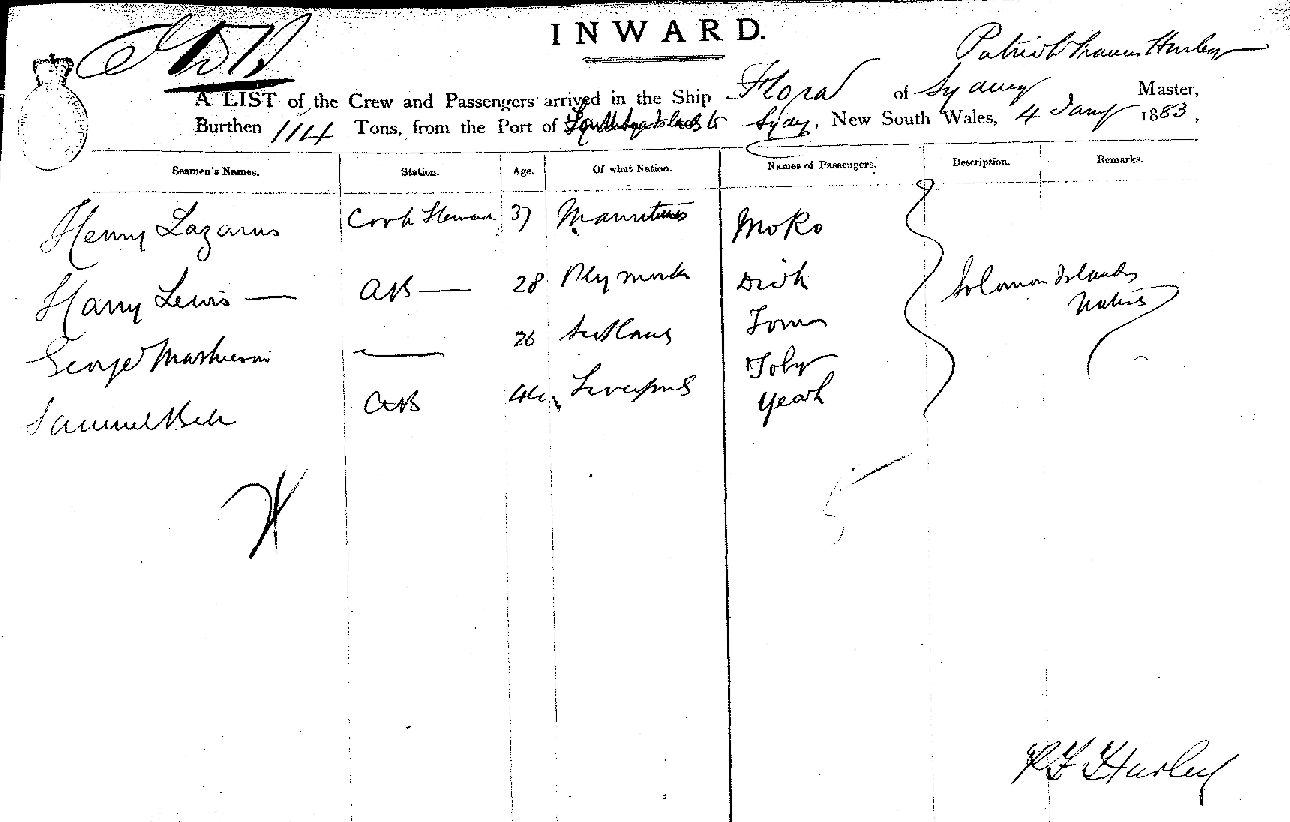 INWARD.
Hurley
A LIST of the Crew and Passengers arrived in the Ship Flora of Sydney Master,
Burthen 114 Tons, from the Port of to Sydy, New South Wales, 4 Jany 1883,
Seamen's Names. Station. Age. Of what Nation. Names of Passengers. Description. Remarks.
Henry Lazarus Cook Steward 37 Mauritius Moko
Harry Lewis AB 28 Plymouth Dick Solomon Islands
Natives
George 26 Tom
Toby
Samuel AB Liverpool
5
P F Hurley